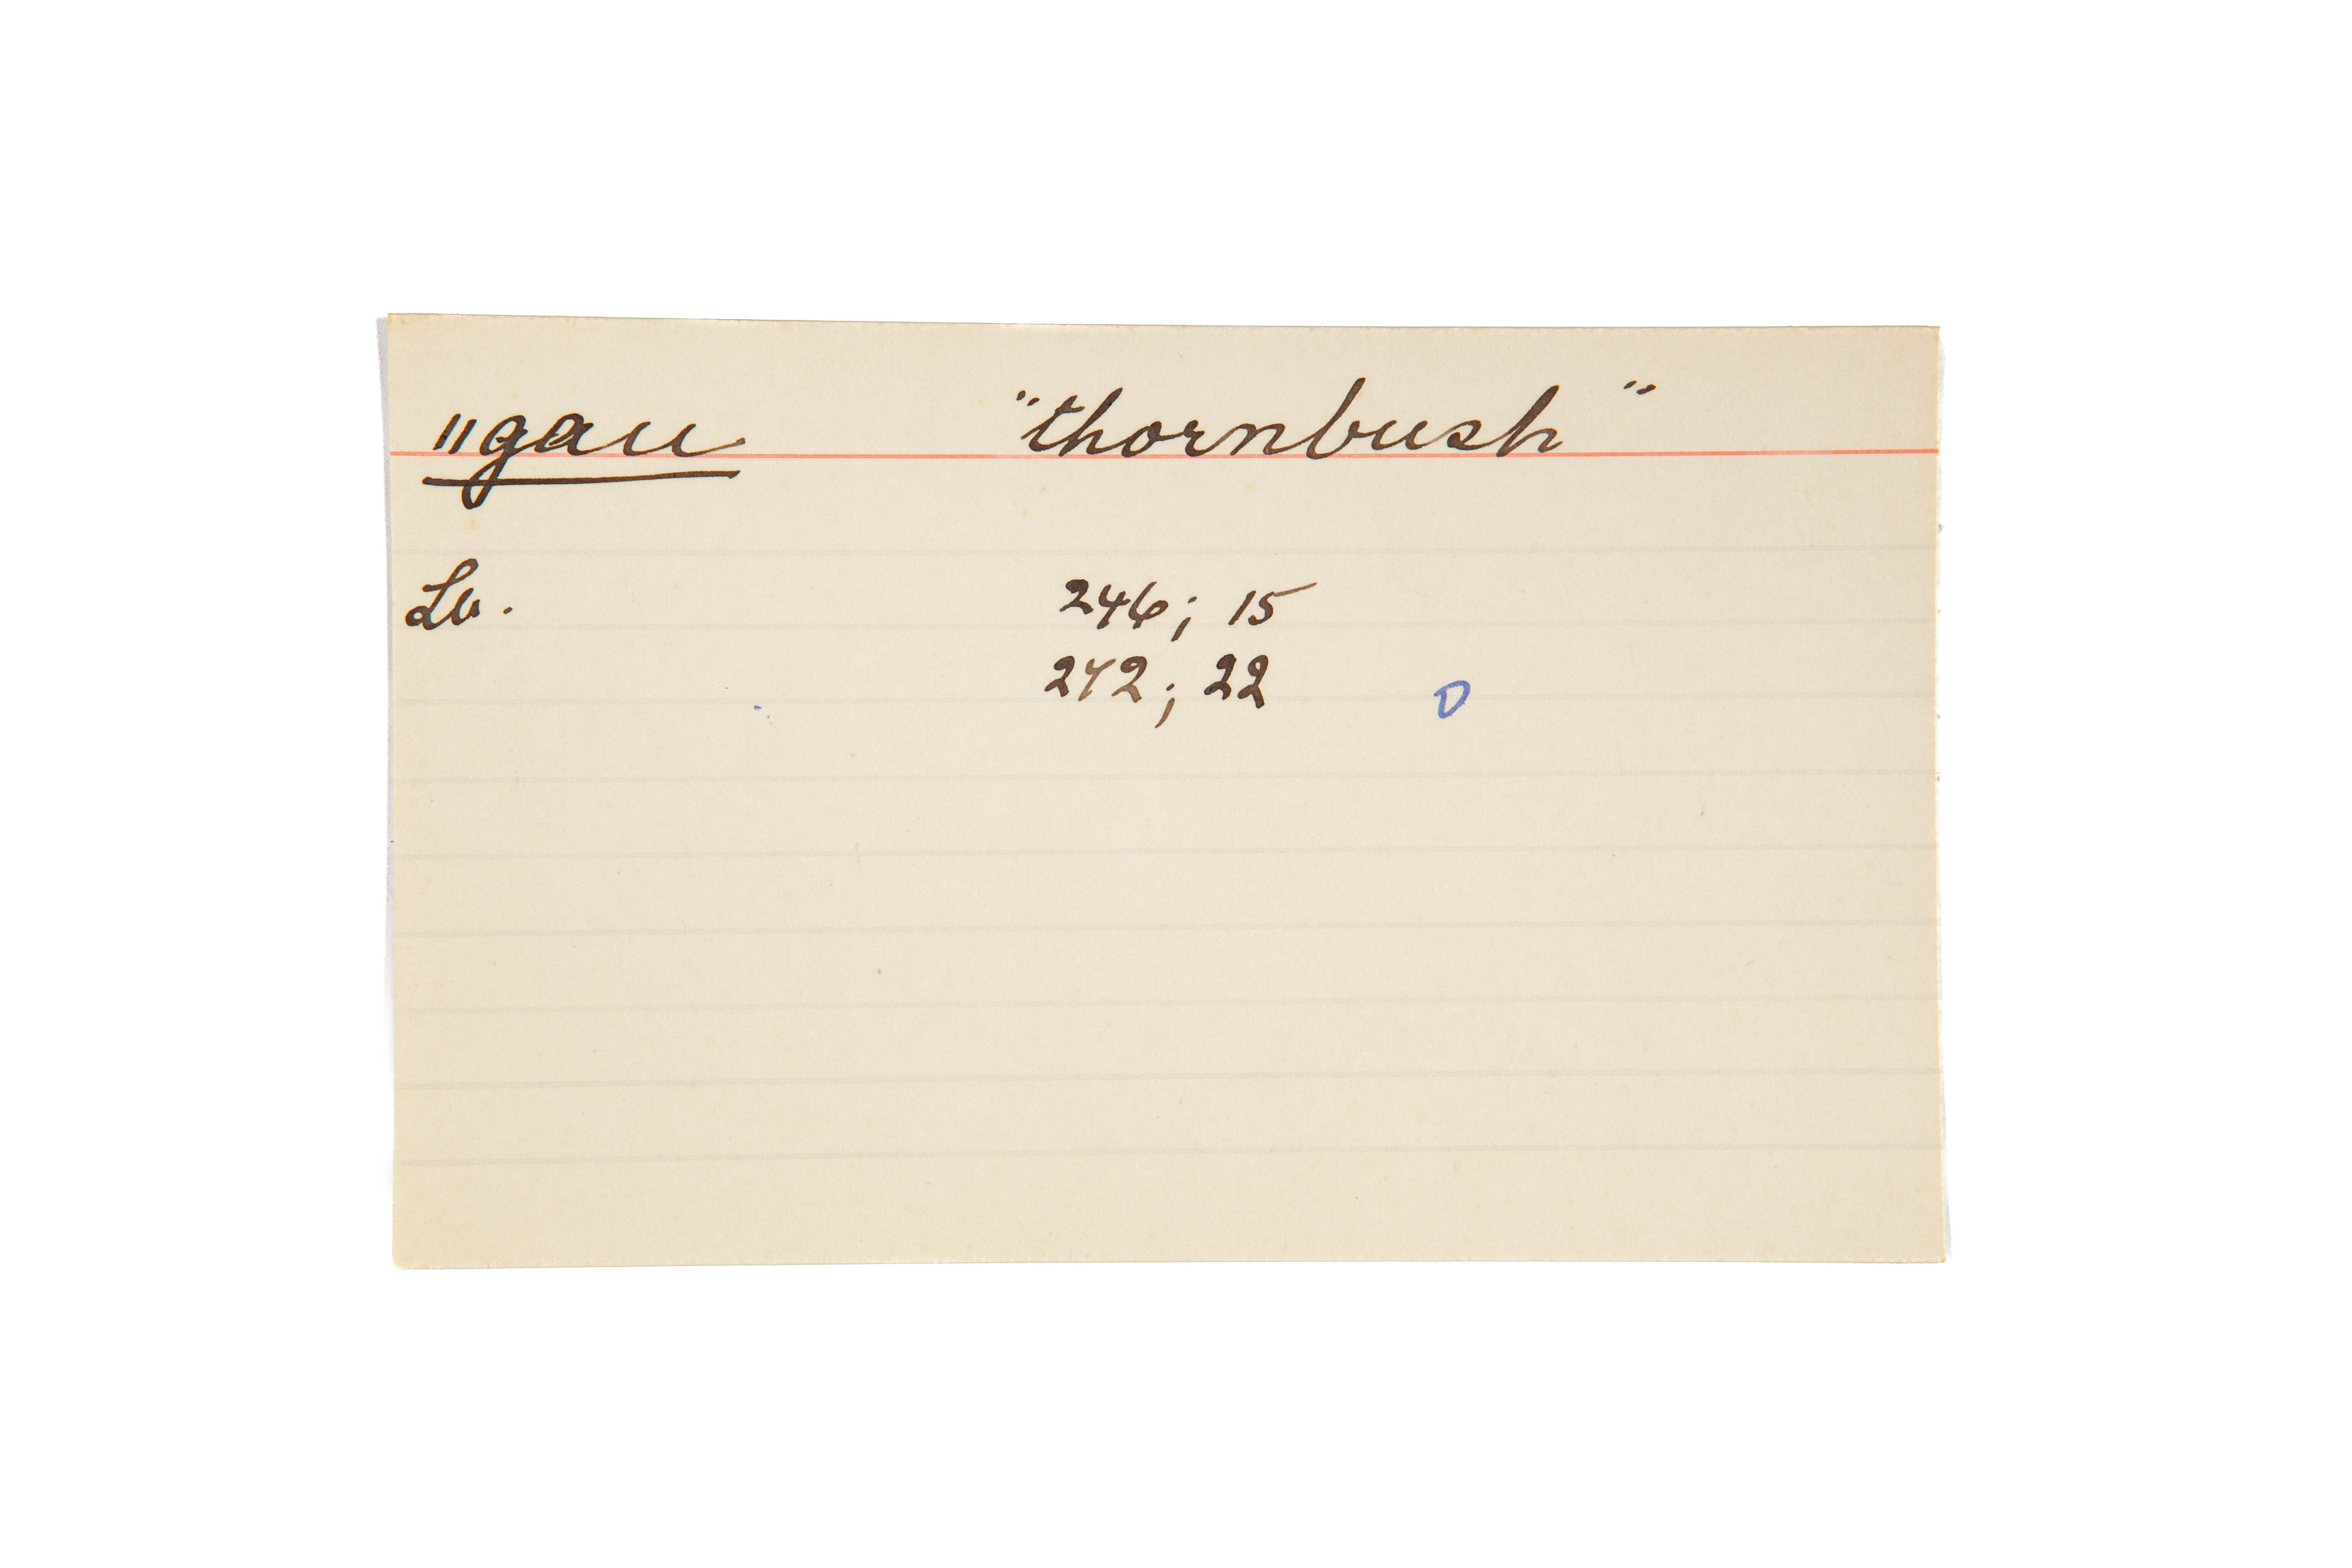 ǁgau "thornbush"
Lb. 246; 15
242; 22 D